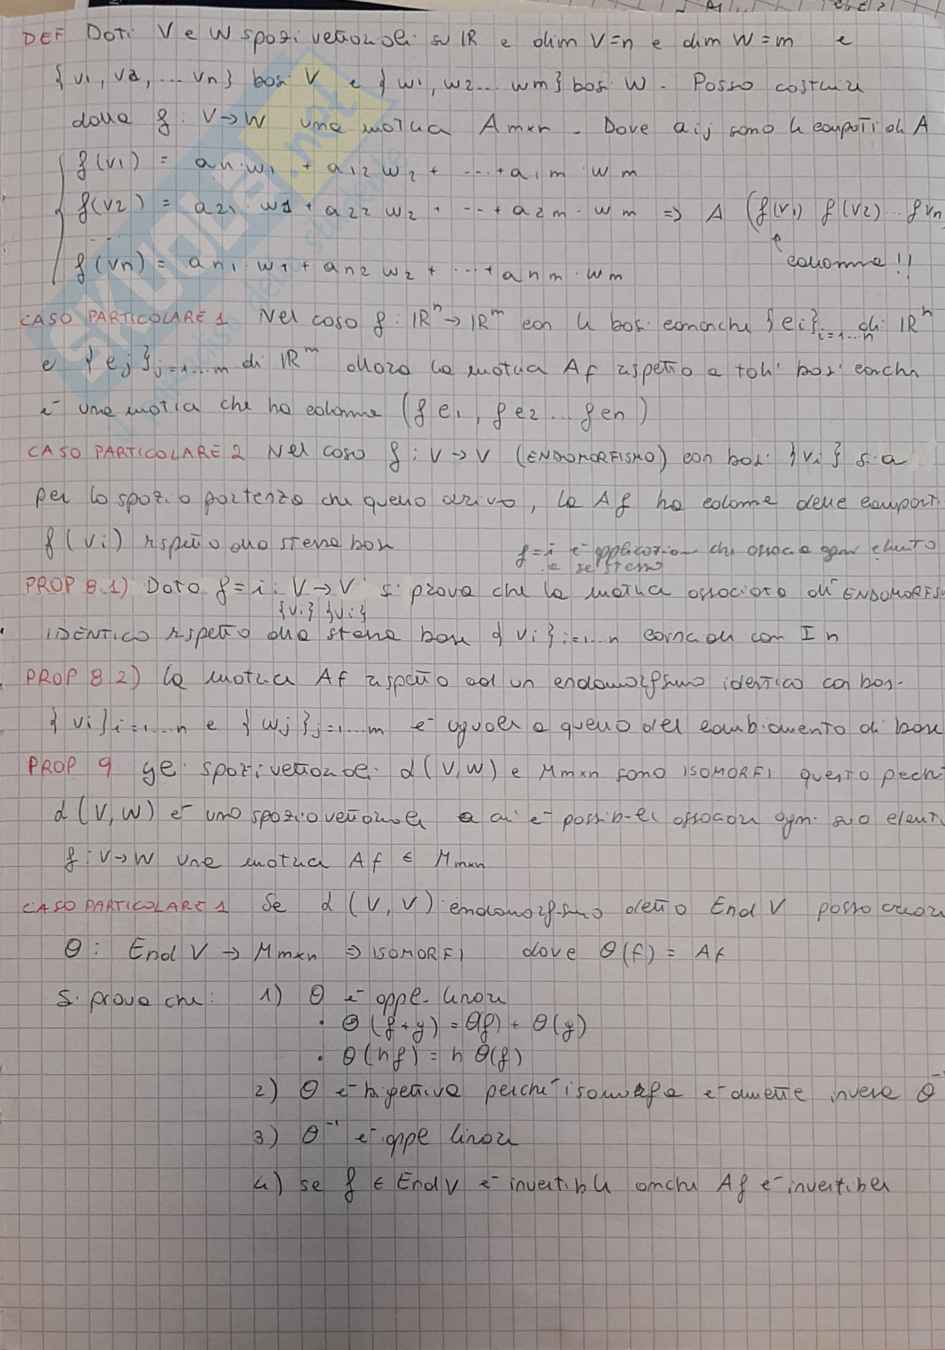 DEF Dati V e W spazi vettoriali su IR e dim V=n e dim W=m e
{v1, v2, ... vn} basi V e {w1, w2... wm} basi W. Posso costruire
dalla f: V→W una matrice Amxn. Dove aij sono le componenti di A
f(v1) = a11·w1 + a12 w2 + ...+ a1m·wm
f(v2) = a21·w1 + a22 w2 + ...+ a2m·wm => A (f(v1) f(v2)... fvn
colonne!!
f(vn) = an1·w1 + an2 w2 + ...+ anm·wm
CASO PARTICOLARE 1 Nel caso f: IRⁿ→IRᵐ con le basi canoniche {ei}i=1...n di IRⁿ
e {ej}j=1...m di IRᵐ allora la matrice Af rispetto a tali basi
è una matrice che ha colonne (fe1, fe2... fen)
CASO PARTICOLARE 2 Nel caso f: V→V (ENDOMORFISMO) con basi {vi} sia
per lo spazio partenza che quello arrivo, la Af ha colonne delle component
f(vi) rispetto alla stessa base
f=i è applicazione che associa ogni elemento
a se stesso
PROP 8.1) Data f=i: V→V si prova che la matrice associata all'ENDOMORFIS
{vi} {vi}
IDENTICO rispetto alla stessa base {vi}i=1...n coincide con In
PROP 8.2) La matrice Af rispetto ad un endomorfismo identico con basi
{vi}i=1...n e {wj}j=1...m è uguale a quello del cambiamento di base
PROP 9 gli spazi vettoriali d(V,W) e Mmxn sono ISOMORFI questo perch
d(V,W) è uno spazio vettoriale e ci è possibile associare ogni suo element
f: V→W una matrice Af ∈ Mmxn
CASO PARTICOLARE 1 Se d(V,V) endomorfismo detto End V posso creare
θ: End V → Mmxn => ISOMORFI dove θ(f) = Af
Si prova che: 1) θ è appl. lineare
· θ(f+g) = θ(f) + θ(g)
· θ(hf) = h θ(f)
2) θ è bigettiva perché isomorfa e ammette inversa θ⁻¹
3) θ⁻¹ è appl lineare
4) se f ∈ End V è invertibile anche Af è invertibile